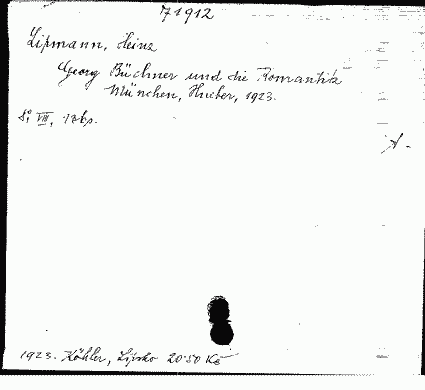 71912
Lipmann, Heinz
Georg Büchner und die Romantik
München, Hueber, 1923.
8°, VIII, 136 s.
A.
1923. Köhler, Lipsko 20·50 Kč